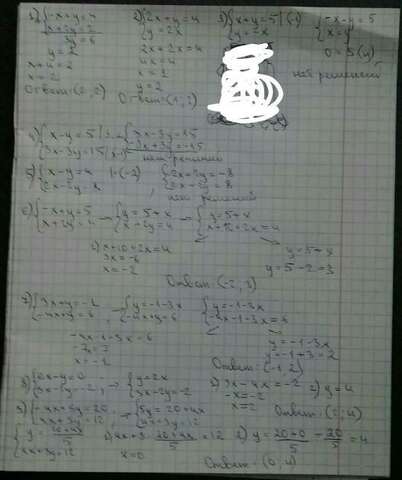 1) {-x+y=4
x+2y=2
3y=6
y=2
x+y=2
x=-2
Ответ: (2; 2)
2) {2x+y=4
y=2x
2x+2x=4
4x=4
x=1
y=2
Ответ: (1; 2)
3) {x+y=5 |(-1)
y=-x
{-x-y=5
x=y
0=5(y)
нет решений
4) {x-y=5
3x-3y=15
{3x-3y=15
-3x+3y=-15
нет решений
5) {x-y=4 |·(-2)
2x-2y=8
{2x+2y=-8
2x-2y=8
нет решений
6) {-x+y=5
x+2y=4
→ {y=5+x
x+2y=4
→ {y=5+x
x+10+2x=4
1) x+10+2x=4
3x=-6
x=-2
y=5+x
y=5-2=3
Ответ: (-2; 3)
7) {3x+y=-1
-4x+y=6
→ {y=-1-3x
-4x+y=6
{y=-1-3x
-4x-1-3x=6
-4x-1-3x=6
x=-1
y=-1-3x
y=-1+3=2
Ответ: (-1; 2)
8)
→ {y=2x
3x-2y=-2
1) 3x-4x=-2
-x=-2
x=2
2) y=4
Ответ: (2; 4)
9) {-4x+5y=20
4x+3y=12
→ {5y=20+4x
4x+3y=12
{y=20+4x/5
4x+3y=12
1) 4x+3·20+4x/5=12
x=0
2) y=20+0/5=20/5=4
Ответ: (0; 4)